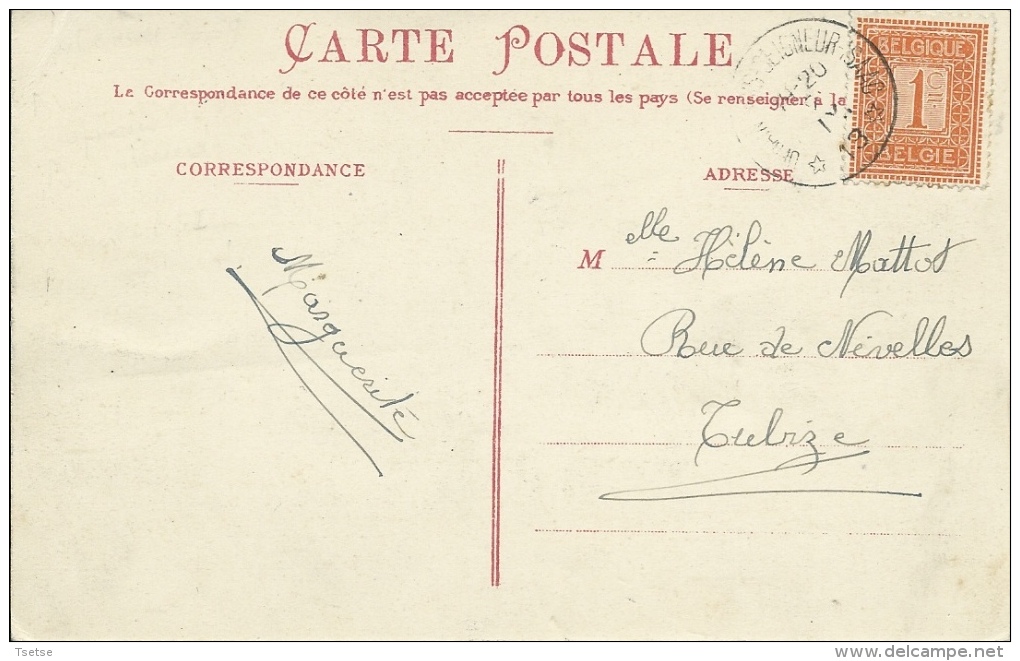 CARTE POSTALE
La Correspondance de ce côté n'est pas acceptée par tous les pays (Se renseigner à la
BELGIQUE
1 C
BELGIE
SEIGNEUR-ISAAC
20
13
CORRESPONDANCE
ADRESSE
M lle Hélène Mattot
Rue de Nivelles
Tubize
Marguerite
Tsetse
delcampe.net